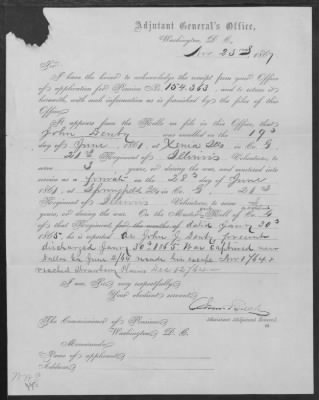 Adjutant General's Office,
Washington, D. C.,
Nov 23rd 1867
Sir:
I have the honor to acknowledge the receipt from your Office
of application for Pension No. 154.363, and to return it
herewith, with such information as is furnished by the files of this
Office.
It appears from the Rolls on file in this Office, that
John Denby was enrolled on the 19th
day of June, 1861, at Xenia Ills in Co. G
21st Regiment of Illinois Volunteers, to
serve 3 years, or during the war, and mustered into
service as a Private on the 28th day of June
1861, at Springfield Ills in Co. G 21st
Regiment of Illinois Volunteers, to serve 3
years, or during the war. On the Muster Roll of Co. G
of that Regiment, for the months of dated Jany 30th
1865, he is reported
discharged Jany 30th 1865 Was captured near
Dallas Ga June 2/64 made his escape Nov 1/64 &
reached Strawberry Plains Dec 12/64
I am, Sir, very respectfully,
Your obedient servant,
Assistant Adjutant General.
The Commissioner of Pensions,
Washington, D. C.
Memoranda:
Name of applicant,
Address,